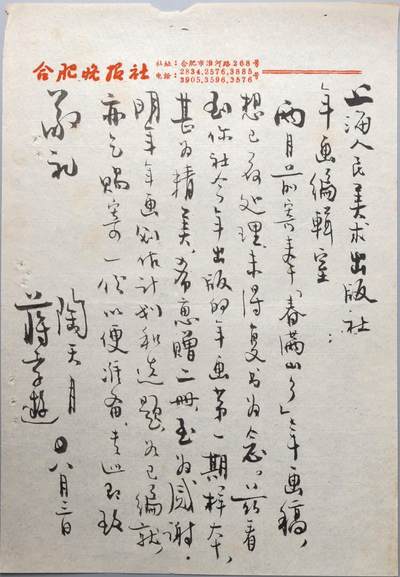 合肥晚报社
社址：合肥市淮河路268号
电话：2834,2576,3885,
3905,3596,3576号
上海人民美术出版社
年画编辑室：
两月前寄奉「春满山乡」年画稿，
想已为处理，未得复书为念。兹看
到你社今年出版的年画第一期样本，
甚为精美，希惠赠二册，至为感谢。
明年年画创作计划和选题，如已编就
亦乞赐寄一份以便准备，专此即致
敬礼
陶天月
蒋孝游
八月三日